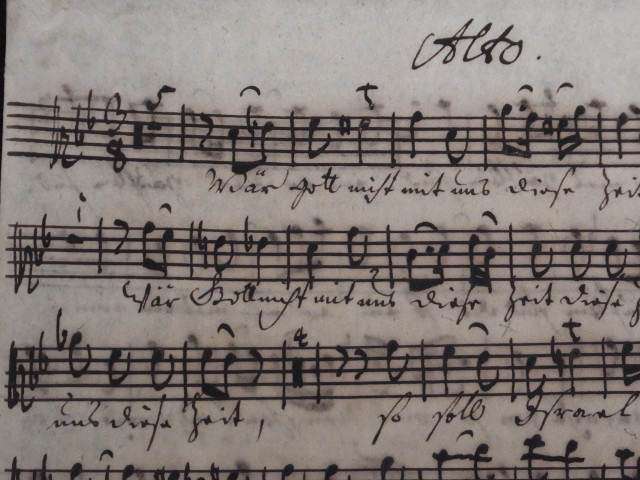 Alto.
5
Wär Gott nicht mit uns diese Zeit
Wär Gott nicht mit uns diese Zeit diese
uns diese Zeit, so soll Israel